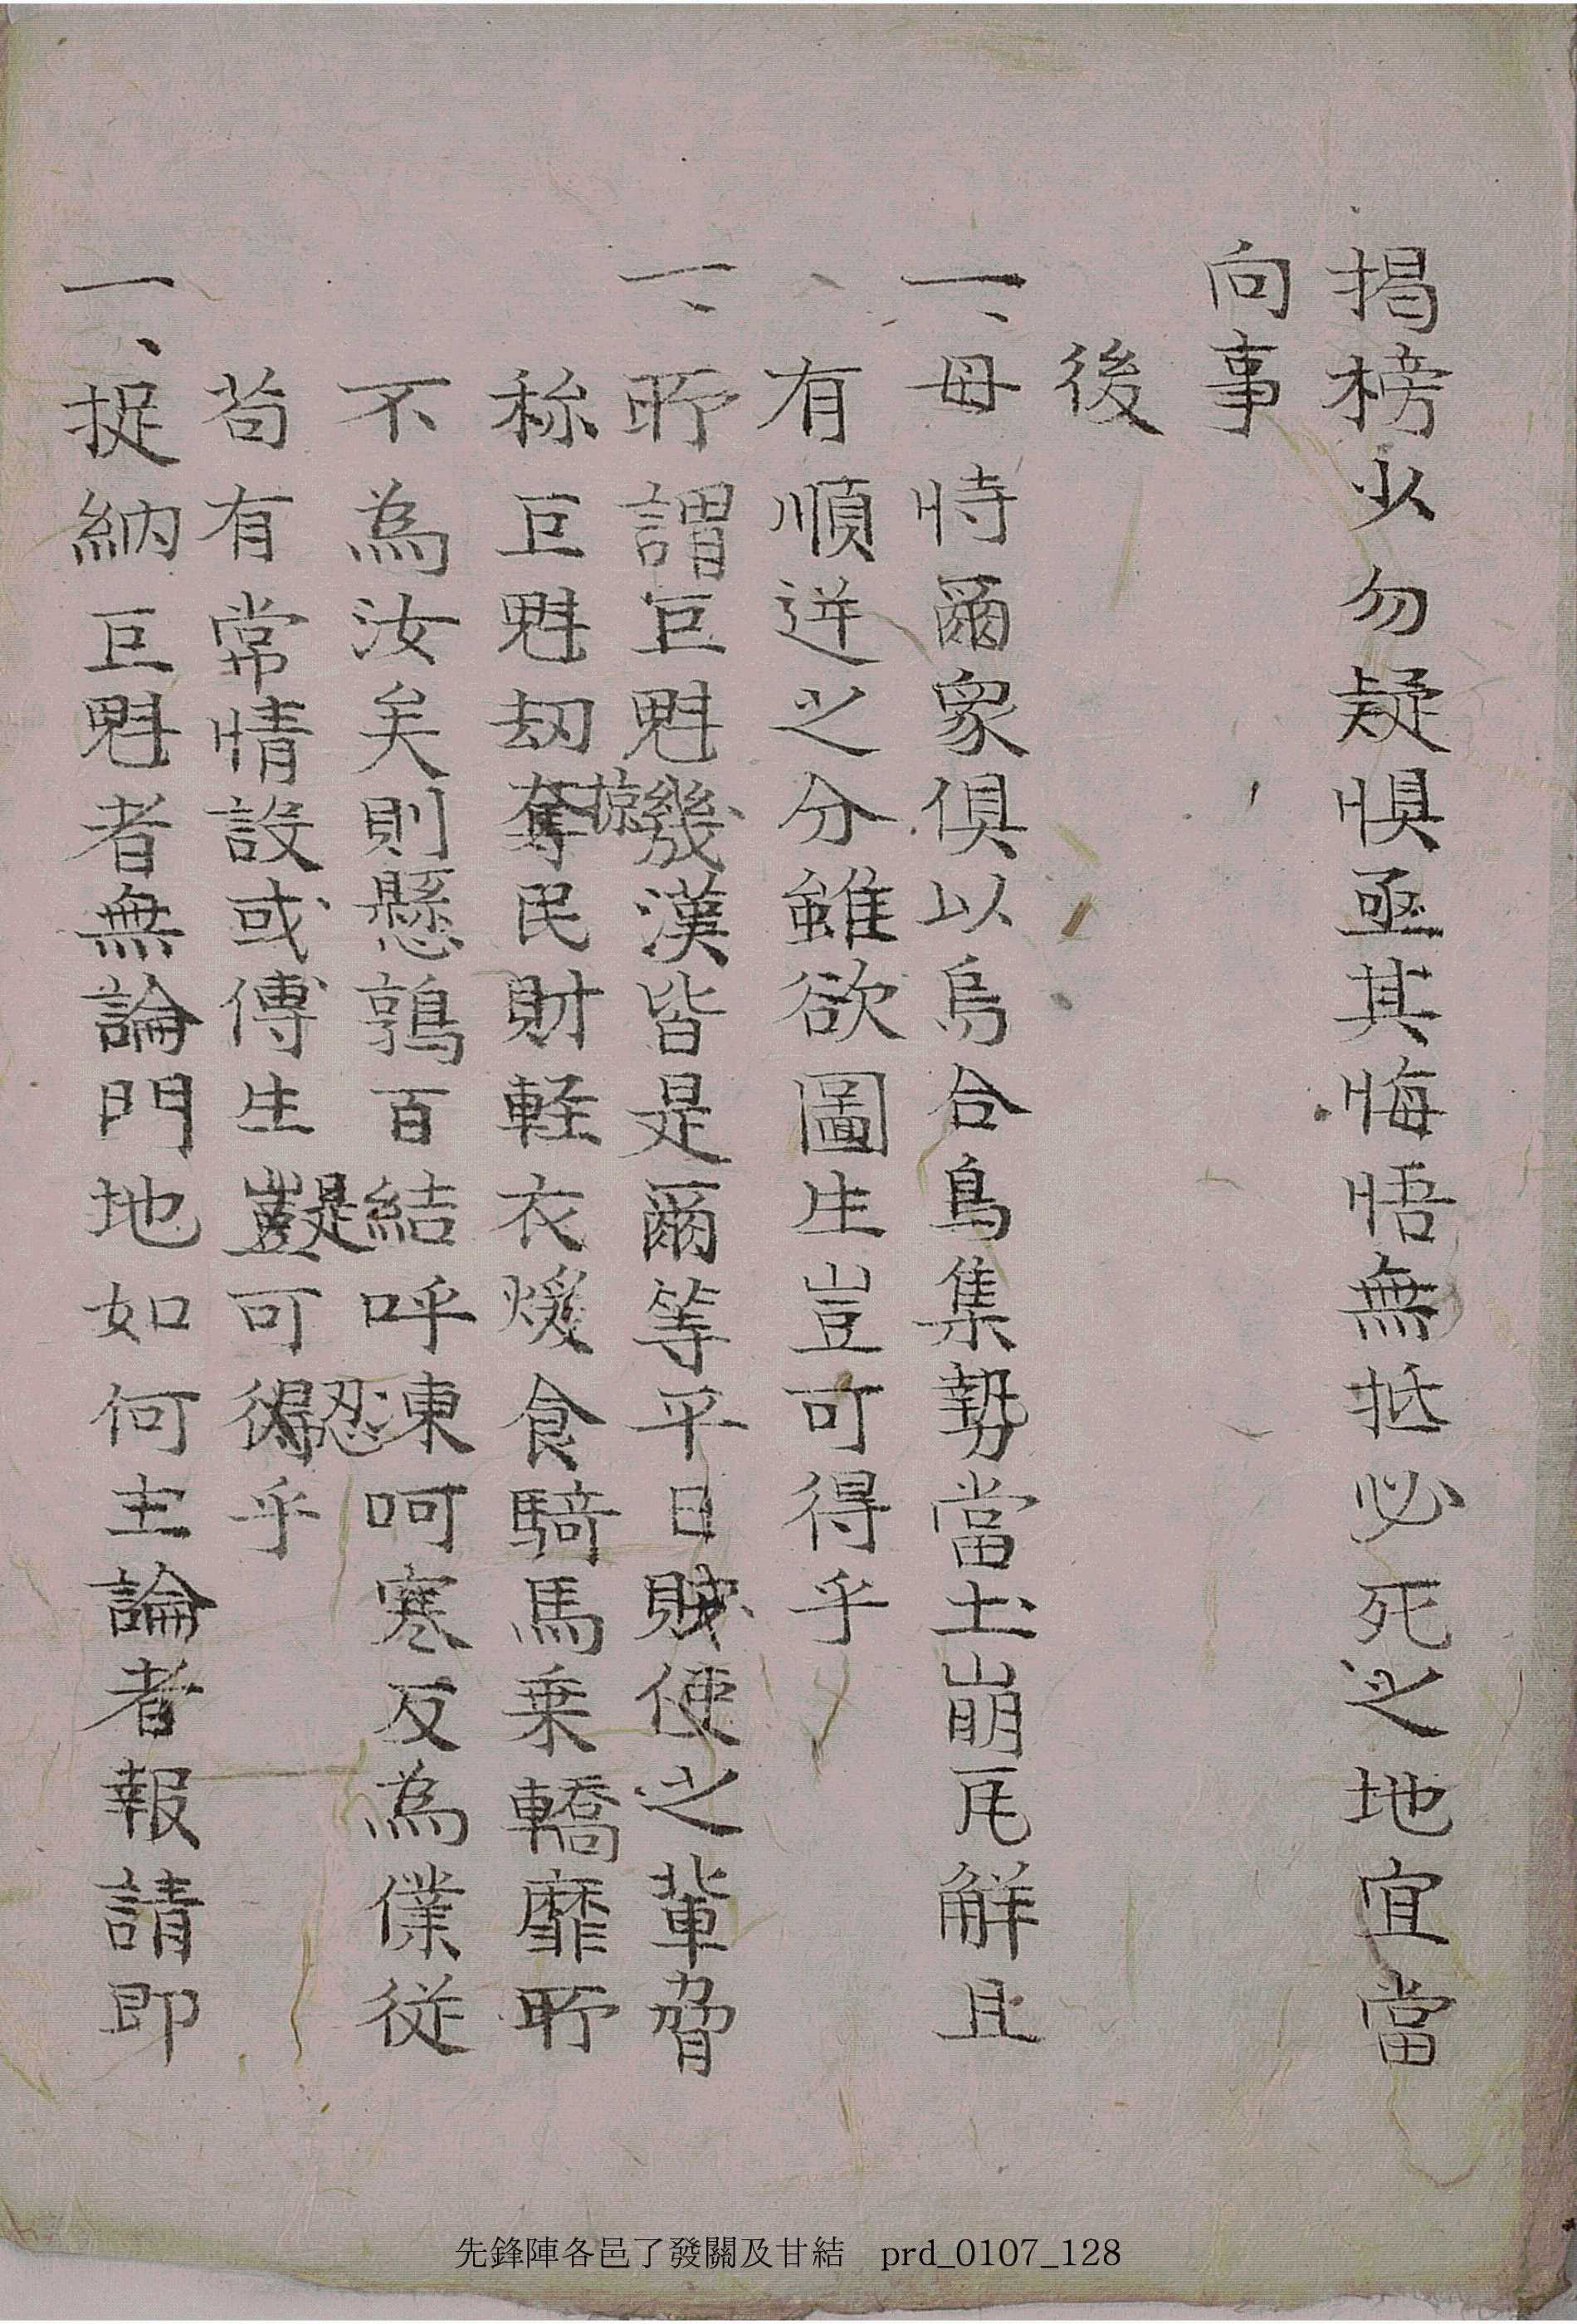 揭榜少勿疑惧亟其悔悟無抵必死之地宜當
向事
後
一、毋恃爾衆俱以烏合鳥集勢當土崩瓦解且
有順逆之分雖欲圖生豈可得乎
一、所謂巨魁幾漢皆是爾等平日賊使之輩脅
称巨魁刼奪掠民財軽衣煖食騎馬乗轎靡所
不為汝矣則懸鶉百結呼凍呵寒反為僕従
苟有常情設或傅生豈是可得忍乎
一、捉納巨魁者無論門地如何主論者報請即
先鋒陣各邑了發關及甘結 prd_0107_128